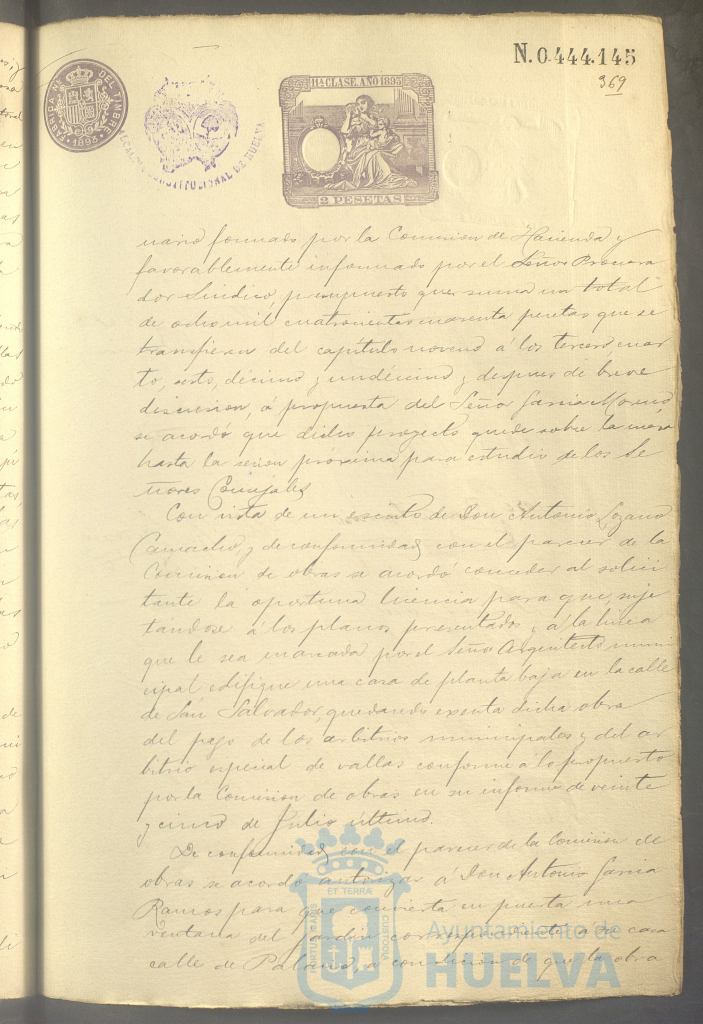 N.0.444.145
369
FABRICA NL. DEL TIMBRE
1893
ALCALDIA CONSTITUCIONAL DE HUELVA
11ª CLASE. AÑO 1893
2 PESETAS
nario formado por la Comision de Hacienda y
favorablemente informado por el Señor Procura
dor Sindico, presupuesto que suma un total
de ocho mil cuatrocientas cuarenta pesetas que se
transfieren del capitulo noveno á los tercero cuar
to, sesto, décimo y undécimo y despues de breve
discusion, á propuesta del Señor Garcia Moreno
se acordó que dicho proyecto quede sobre la mesa
hasta la sesion próxima para estudio de los Se
ñores Concejales
Con vista de un escrito de Don Antonio Lozano
Camacho, y de conformidad con el parecer de la
Comision de obras se acordó conceder al solici
tante la oportuna licencia para que, suje
tándose á los planos presentados y á la linea
que le sea marcada por el Señor Arquitecto muni
cipal edifique una casa de planta baja en la calle
de San Salvador, quedando exenta dicha obra
del pago de los arbitrios municipales y del ar
bitrio especial de vallas conforme á lo propuesto
por la Comision de obras en su informe de veinte
y cinco de Julio último.
De conformidad con el parecer de la Comision de
obras se acordó autorizar á Don Antonio Garcia
Ramos para que convierta en puerta una
ventana del jardin correspondiente a su casa
calle de Palacio, a condicion de que la obra
PORTUS MARIS
ET TERRÆ
CUSTODIA
Ayuntamiento de
HUELVA